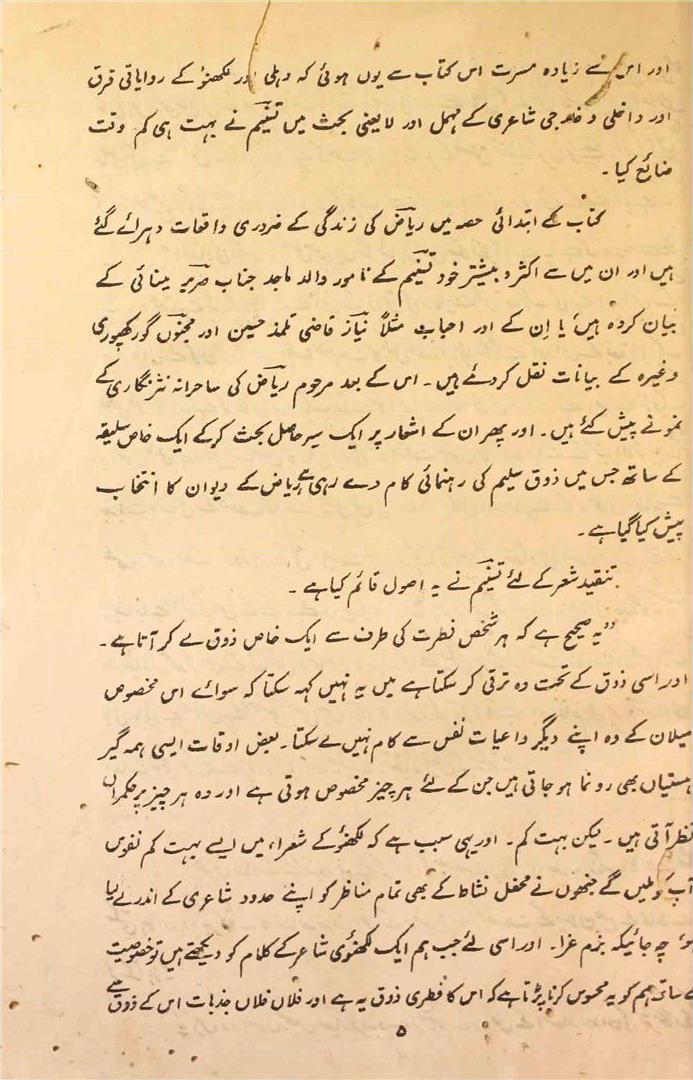 اور اس سے زیادہ مسرت اس کتاب سے یوں ہوئی کہ دہلی اور لکھنؤ کے روایاتی فرق
اور داخلی و خارجی شاعری کے مہمل اور لایعنی بحث میں تسنیم نے بہت ہی کم وقت
ضائع کیا۔
کتاب کے ابتدائی حصہ میں ریاض کی زندگی کے ضروری واقعات دہرائے گئے
ہیں اور ان میں سے اکثر و بیشتر خود تسنیم کے نامور والد ماجد جناب صریر مینائی کے
بیان کردہ ہیں یا اِن کے اور احباب مثلاً نیاز قاضی تلمذ حسین اور مجنوں گورکھپوری
وغیرہ کے بیانات نقل کردئے ہیں۔ اس کے بعد مرحوم ریاض کی ساحرانہ نثر نگاری کے
نمونے پیش کئے ہیں۔ اور پھر ان کے اشعار پر ایک سیر حاصل بحث کرکے ایک خاص سلیقہ
کے ساتھ جس میں ذوق سلیم کی رہنمائی کام دے رہی ہے ریاض کے دیوان کا انتخاب
پیش کیا گیا ہے۔
تنقید شعر کے لئے تسنیم نے یہ اصول قائم کیا ہے۔
”یہ صحیح ہے کہ ہر شخص فطرت کی طرف سے ایک خاص ذوق لے کر آتا ہے۔
اور اسی ذوق کے تحت وہ ترقی کر سکتا ہے میں یہ نہیں کہہ سکتا کہ سوائے اس مخصوص
میلان کے وہ اپنے دیگر داعیات نفس سے کام نہیں لے سکتا۔ بعض اوقات ایسی ہمہ گیر
ہستیاں بھی رونما ہو جاتی ہیں جن کے لئے ہر چیز مخصوص ہوتی ہے اور وہ ہر چیز پر حکمراں
نظر آتی ہیں۔ لیکن بہت کم۔ اور یہی سبب ہے کہ لکھنؤ کے شعراء میں ایسے بہت کم نفوس
آپ کو ملیں گے جنھوں نے محفل نشاط کے بھی تمام مناظر کو اپنے حدود شاعری کے اندر لے لیا
ہو، چہ جائیکہ بزم عزا۔ اور اسی لئے جب ہم ایک لکھنؤی شاعر کے کلام کو دیکھتے ہیں تو خصوصیت
کے ساتھ ہم کو یہ محسوس کرنا پڑتا ہے کہ اس کا فطری ذوق یہ ہے اور فلاں فلاں جذبات اس کے ذوق سے
۵